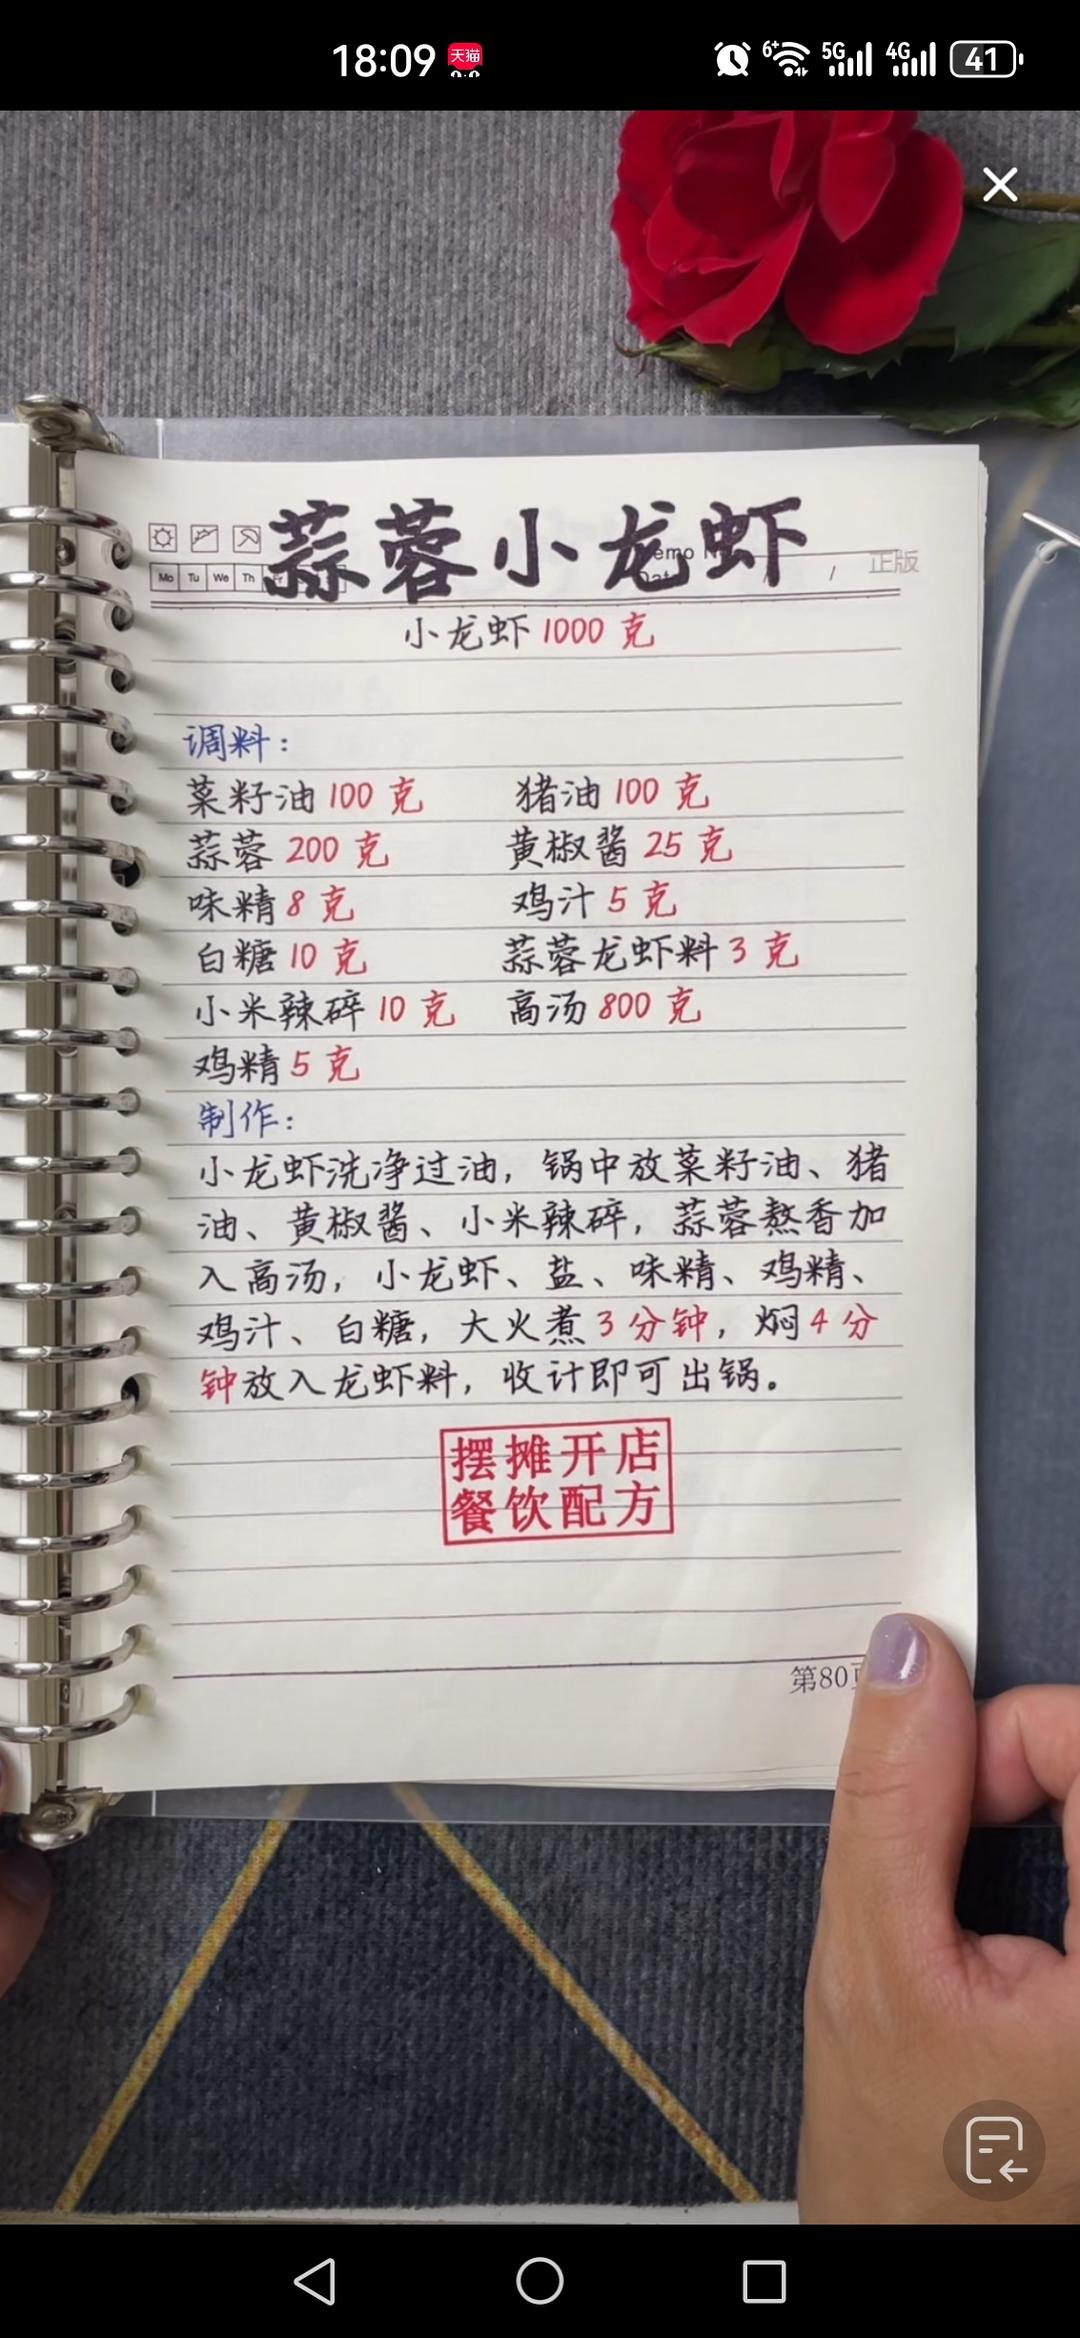 18:09 天猫 6+ 5G 4G 41
蒜蓉小龙虾
Mo Tu We Th
正版
小龙虾 1000 克
调料：
菜籽油 100 克 猪油 100 克
蒜蓉 200 克 黄椒酱 25 克
味精 8 克 鸡汁 5 克
白糖 10 克 蒜蓉龙虾料 3 克
小米辣碎 10 克 高汤 800 克
鸡精 5 克
制作：
小龙虾洗净过油，锅中放菜籽油、猪
油、黄椒酱、小米辣碎，蒜蓉熬香加
入高汤，小龙虾、盐、味精、鸡精、
鸡汁、白糖，大火煮 3 分钟，焖 4 分
钟放入龙虾料，收计即可出锅。
摆摊开店
餐饮配方
第80页